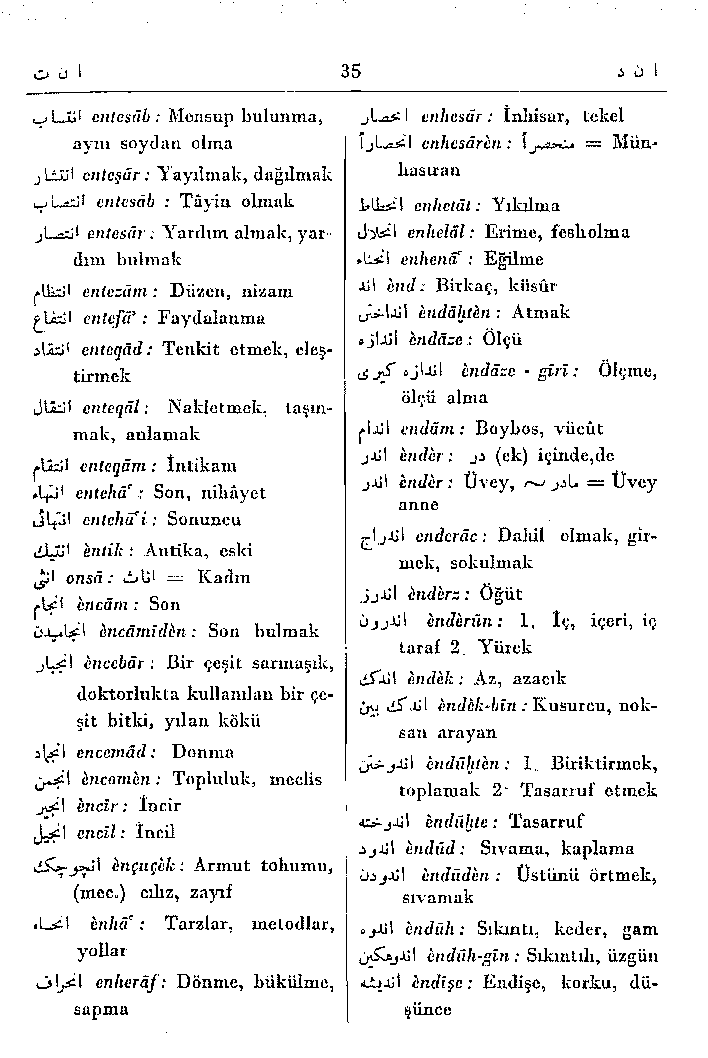 ا ن ت
35
ا ن د
انتساب entesāb : Mensup bulunma,
aynı soydan olma
انتشار enteşār : Yayılmak, dağılmak
انتصاب entesāb : Tâyin olmak
انتصار entesār : Yardım almak, yar-
dım bulmak
انتظام entezām : Düzen, nizam
انتفاع entefā' : Faydalanma
انتقاد enteqād : Tenkit etmek, eleş-
tirmek
انتقال enteqāl : Nakletmek, taşın-
mak, anlamak
انتقام enteqām : İntikam
انتهاء entehā' : Son, nihâyet
انتهائى entehā'i : Sonuncu
انتيك èntik : Antika, eski
انثى onsā : اناث = Kadın
انجام èncām : Son
انجاميدن èncāmīdèn : Son bulmak
انجبار èncebār : Bir çeşit sarmaşık,
doktorlukta kullanılan bir çe-
şit bitki, yılan kökü
انجماد encemād : Donma
انجمن èncomèn : Topluluk, meclis
انجير èncīr : İncir
انجيل encīl : İncil
انچوچك ènçuçèk : Armut tohumu,
(mec.) cılız, zayıf
انحاء ènhā' : Tarzlar, metodlar,
yollar
انحراف enherāf : Dönme, bükülme,
sapma
انحصار enhesār : İnhisar, tekel
انحصاراً enhesārèn : منحصراً = Mün-
hasıran
انحطاط enhetāt : Yıkılma
انحلال enhelāl : Erime, fesholma
انحناء enhenā' : Eğilme
اند ènd : Birkaç, küsûr
انداختن èndāḫtèn : Atmak
اندازه èndāze : Ölçü
اندازه كيرى èndāze - gīrī : Ölçme,
ölçü alma
اندام endām : Boybos, vücût
اندر èndèr : در (ek) içinde,de
اندر èndèr : Üvey, مادر ~ = Üvey
anne
اندراج enderāc : Dahil olmak, gir-
mek, sokulmak
اندرز èndèrz : Öğüt
اندرون èndèrūn : 1. İç, içeri, iç
taraf 2. Yürek
اندك èndèk : Az, azacık
اندك بين èndèk-bīn : Kusurcu, nok-
san arayan
اندوختن èndūḫtèn : 1. Biriktirmek,
toplamak 2- Tasarruf etmek
اندوخته èndūḫte : Tasarruf
اندود èndūd : Sıvama, kaplama
اندودن èndūdèn : Üstünü örtmek,
sıvamak
اندوه èndūh : Sıkıntı, keder, gam
اندوهكين èndūh-gīn : Sıkıntılı, üzgün
انديشه èndīşe : Endişe, korku, dü-
şünce